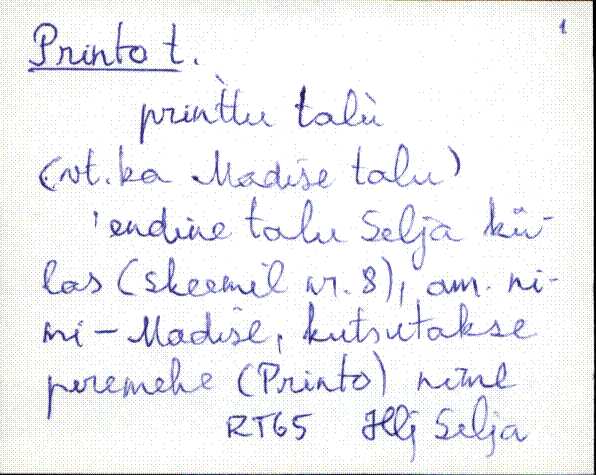 1
Printo t.
print̀tu talù
(vt. ka Madise talu)
'endine talu Selja kü-
las (skeemil nr. 8), am. ni-
mi - Madise, kutsutakse
peremehe (Printo) nime
RT65 Hlj Selja